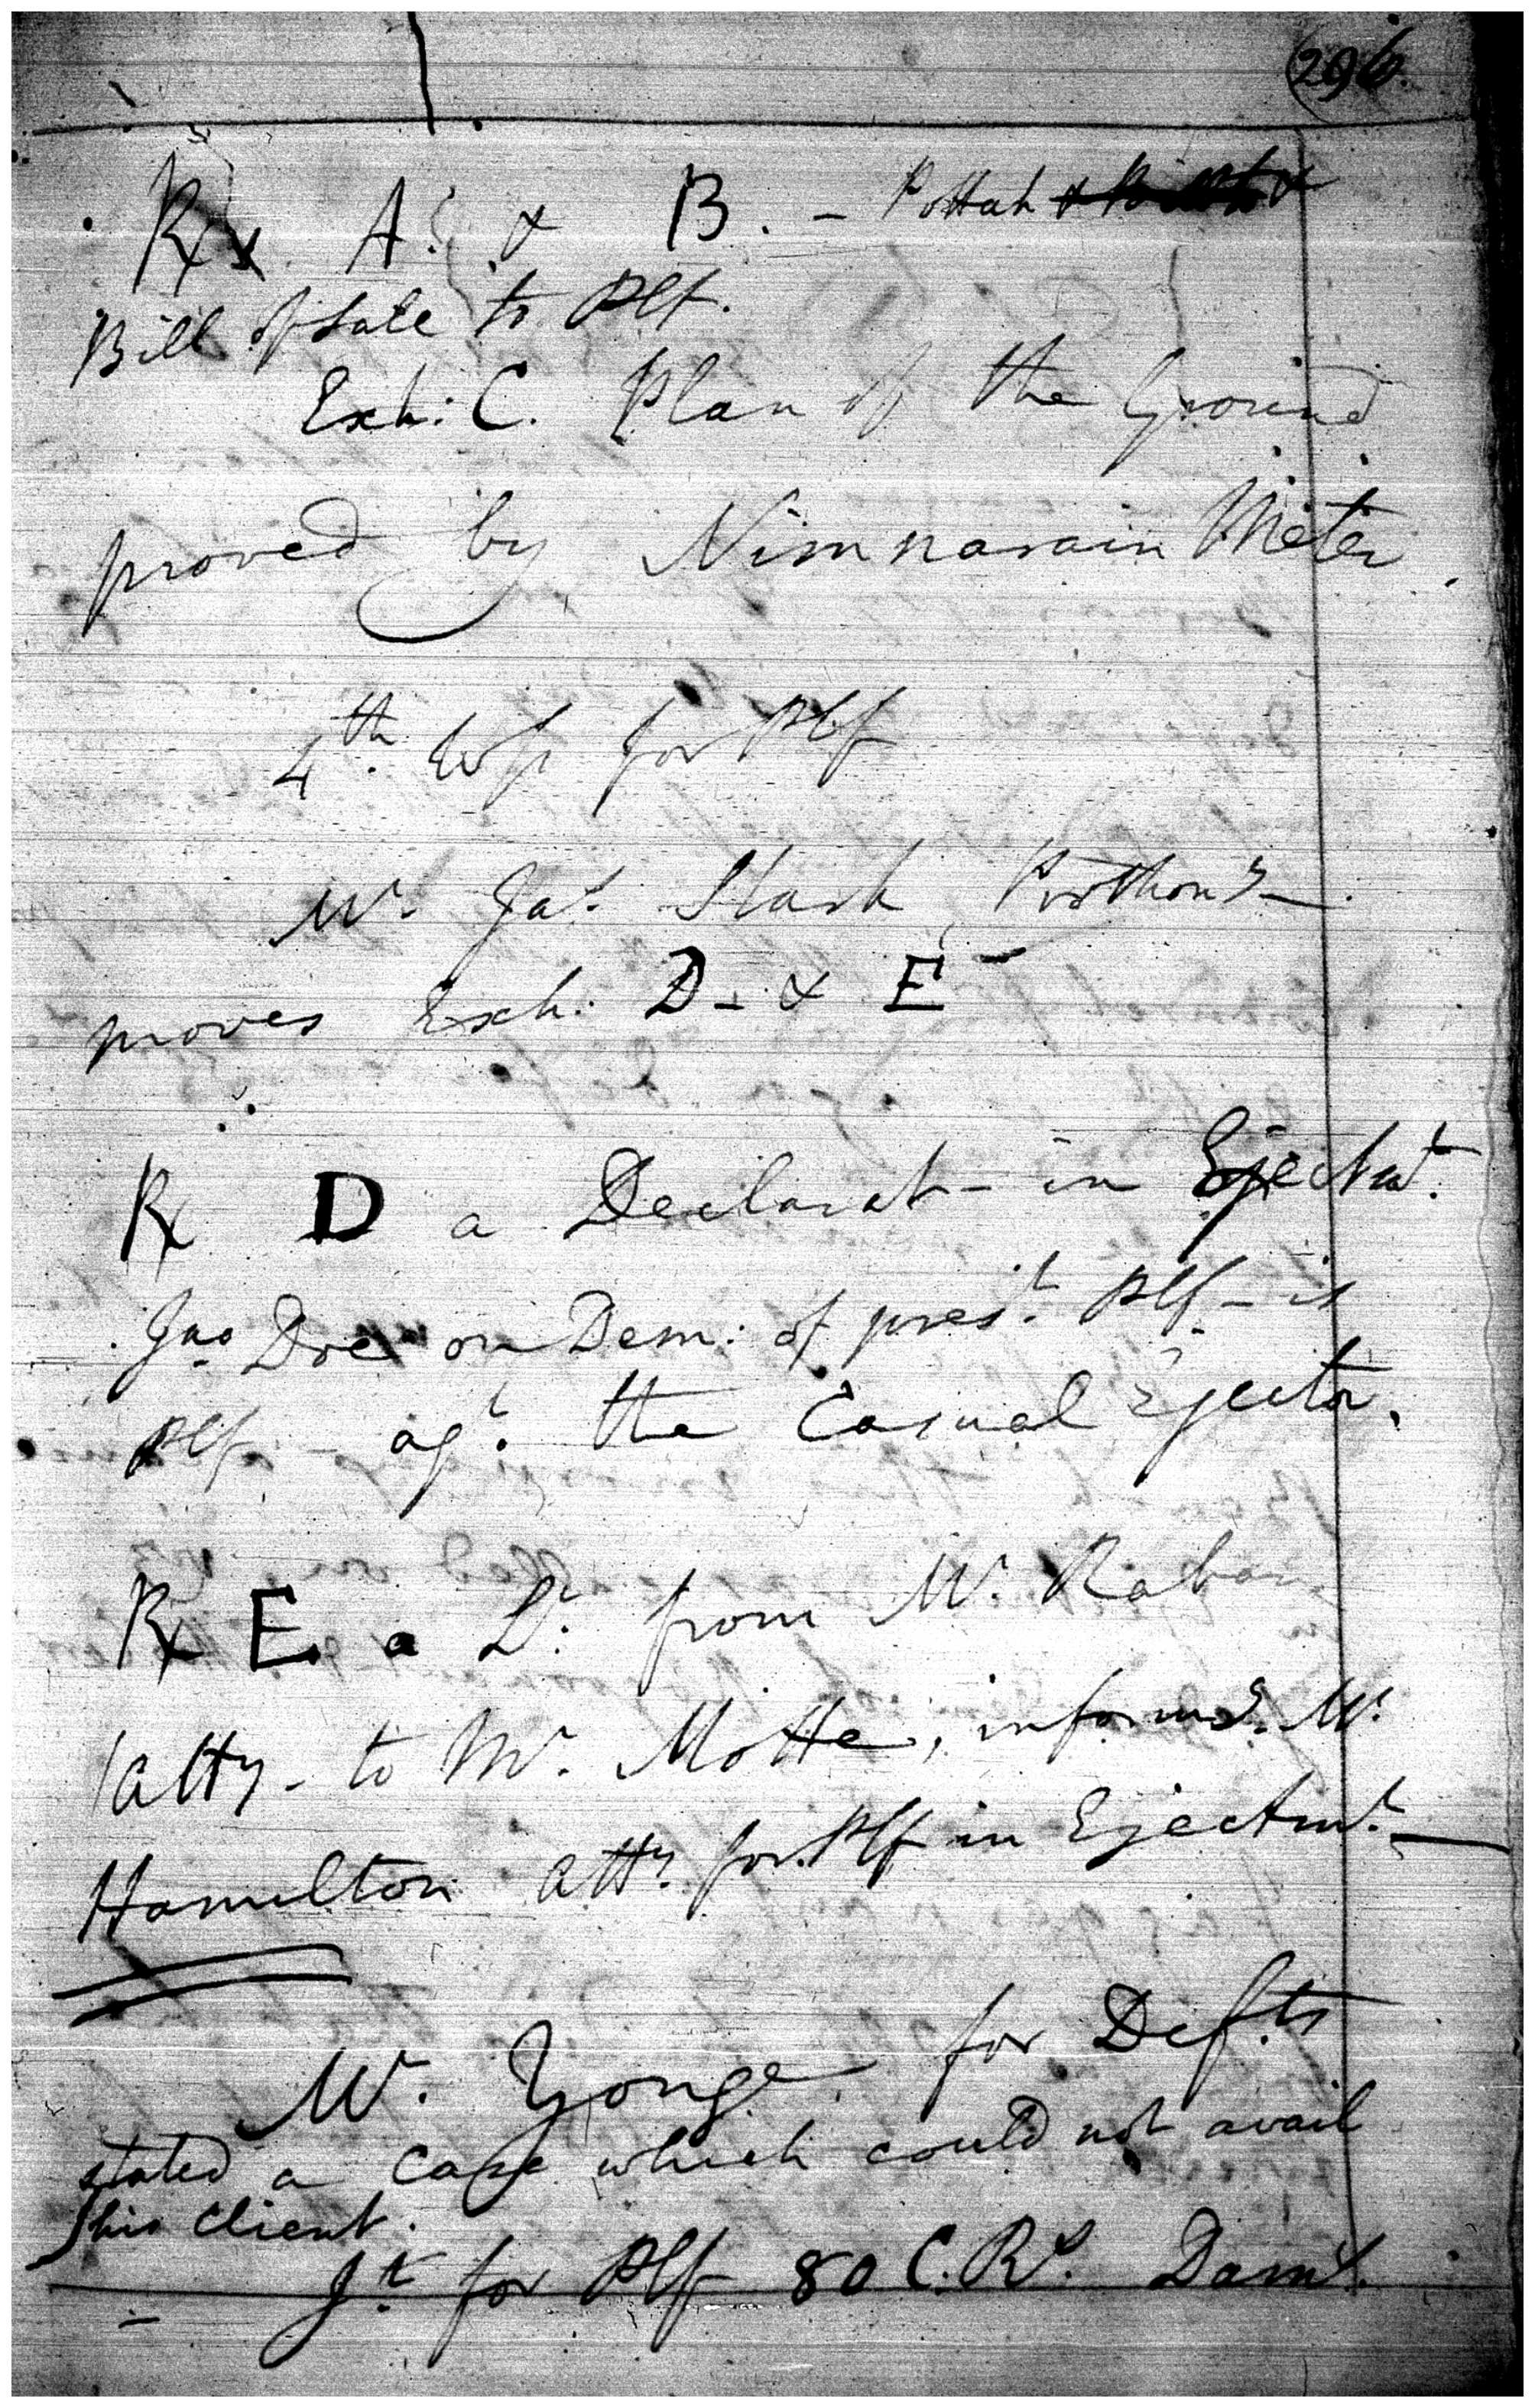 296.
Rx A. & B. - Pottah &
Bill of Sale to Plf.
Exh: C. Plan of the Ground
proved by Nimnarain Meter.
4th. Wss for Plf
Mr. Jas. Stark Prothony.
proves Exh: D - & E -
Rx D a Declarat- in Ejectmt.
Jno Doe on Dem: of prest. Plf - is
Plf - agt. the Casual Ejector.
Rx E. a Lr. from Mr. Raban
atty - to Mr. Motte, informg. Mr.
Hamilton atty for Plf in Ejectmt. —
Mr. Yonge for Defts
stated a Case which could not avail
his Client.
Jt. for Plf 80 C. Rs. Dams.